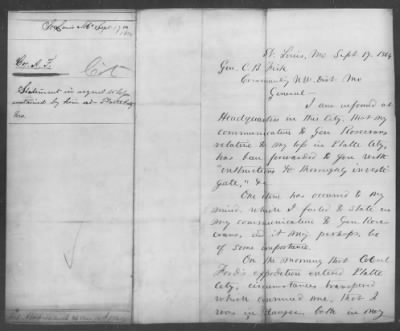 St Louis Mo Sept 17th
Cit
Statement in regard to loss
sustained by him at Platte City
Mo.
St. Louis, Mo Sept. 17. 1864
Gen. C. B. Fisk
Commanding N.W. Dist. Mo
General—
I am informed at
Headquarters in this City, that my
communication to Gen Rosecrans
relative to my loss in Platte City,
has been forwarded to you with
"instructions to thoroughly investi
gate," &c
One item has occurred to my
mind, which I failed to state in
my communication to Gen Rose
crans, and it may, perhaps, be
of some importance.
On the morning that Colonel
Ford's expedition entered Platte
City, circumstances transpired
which convinced me, that I
was in danger, both in my